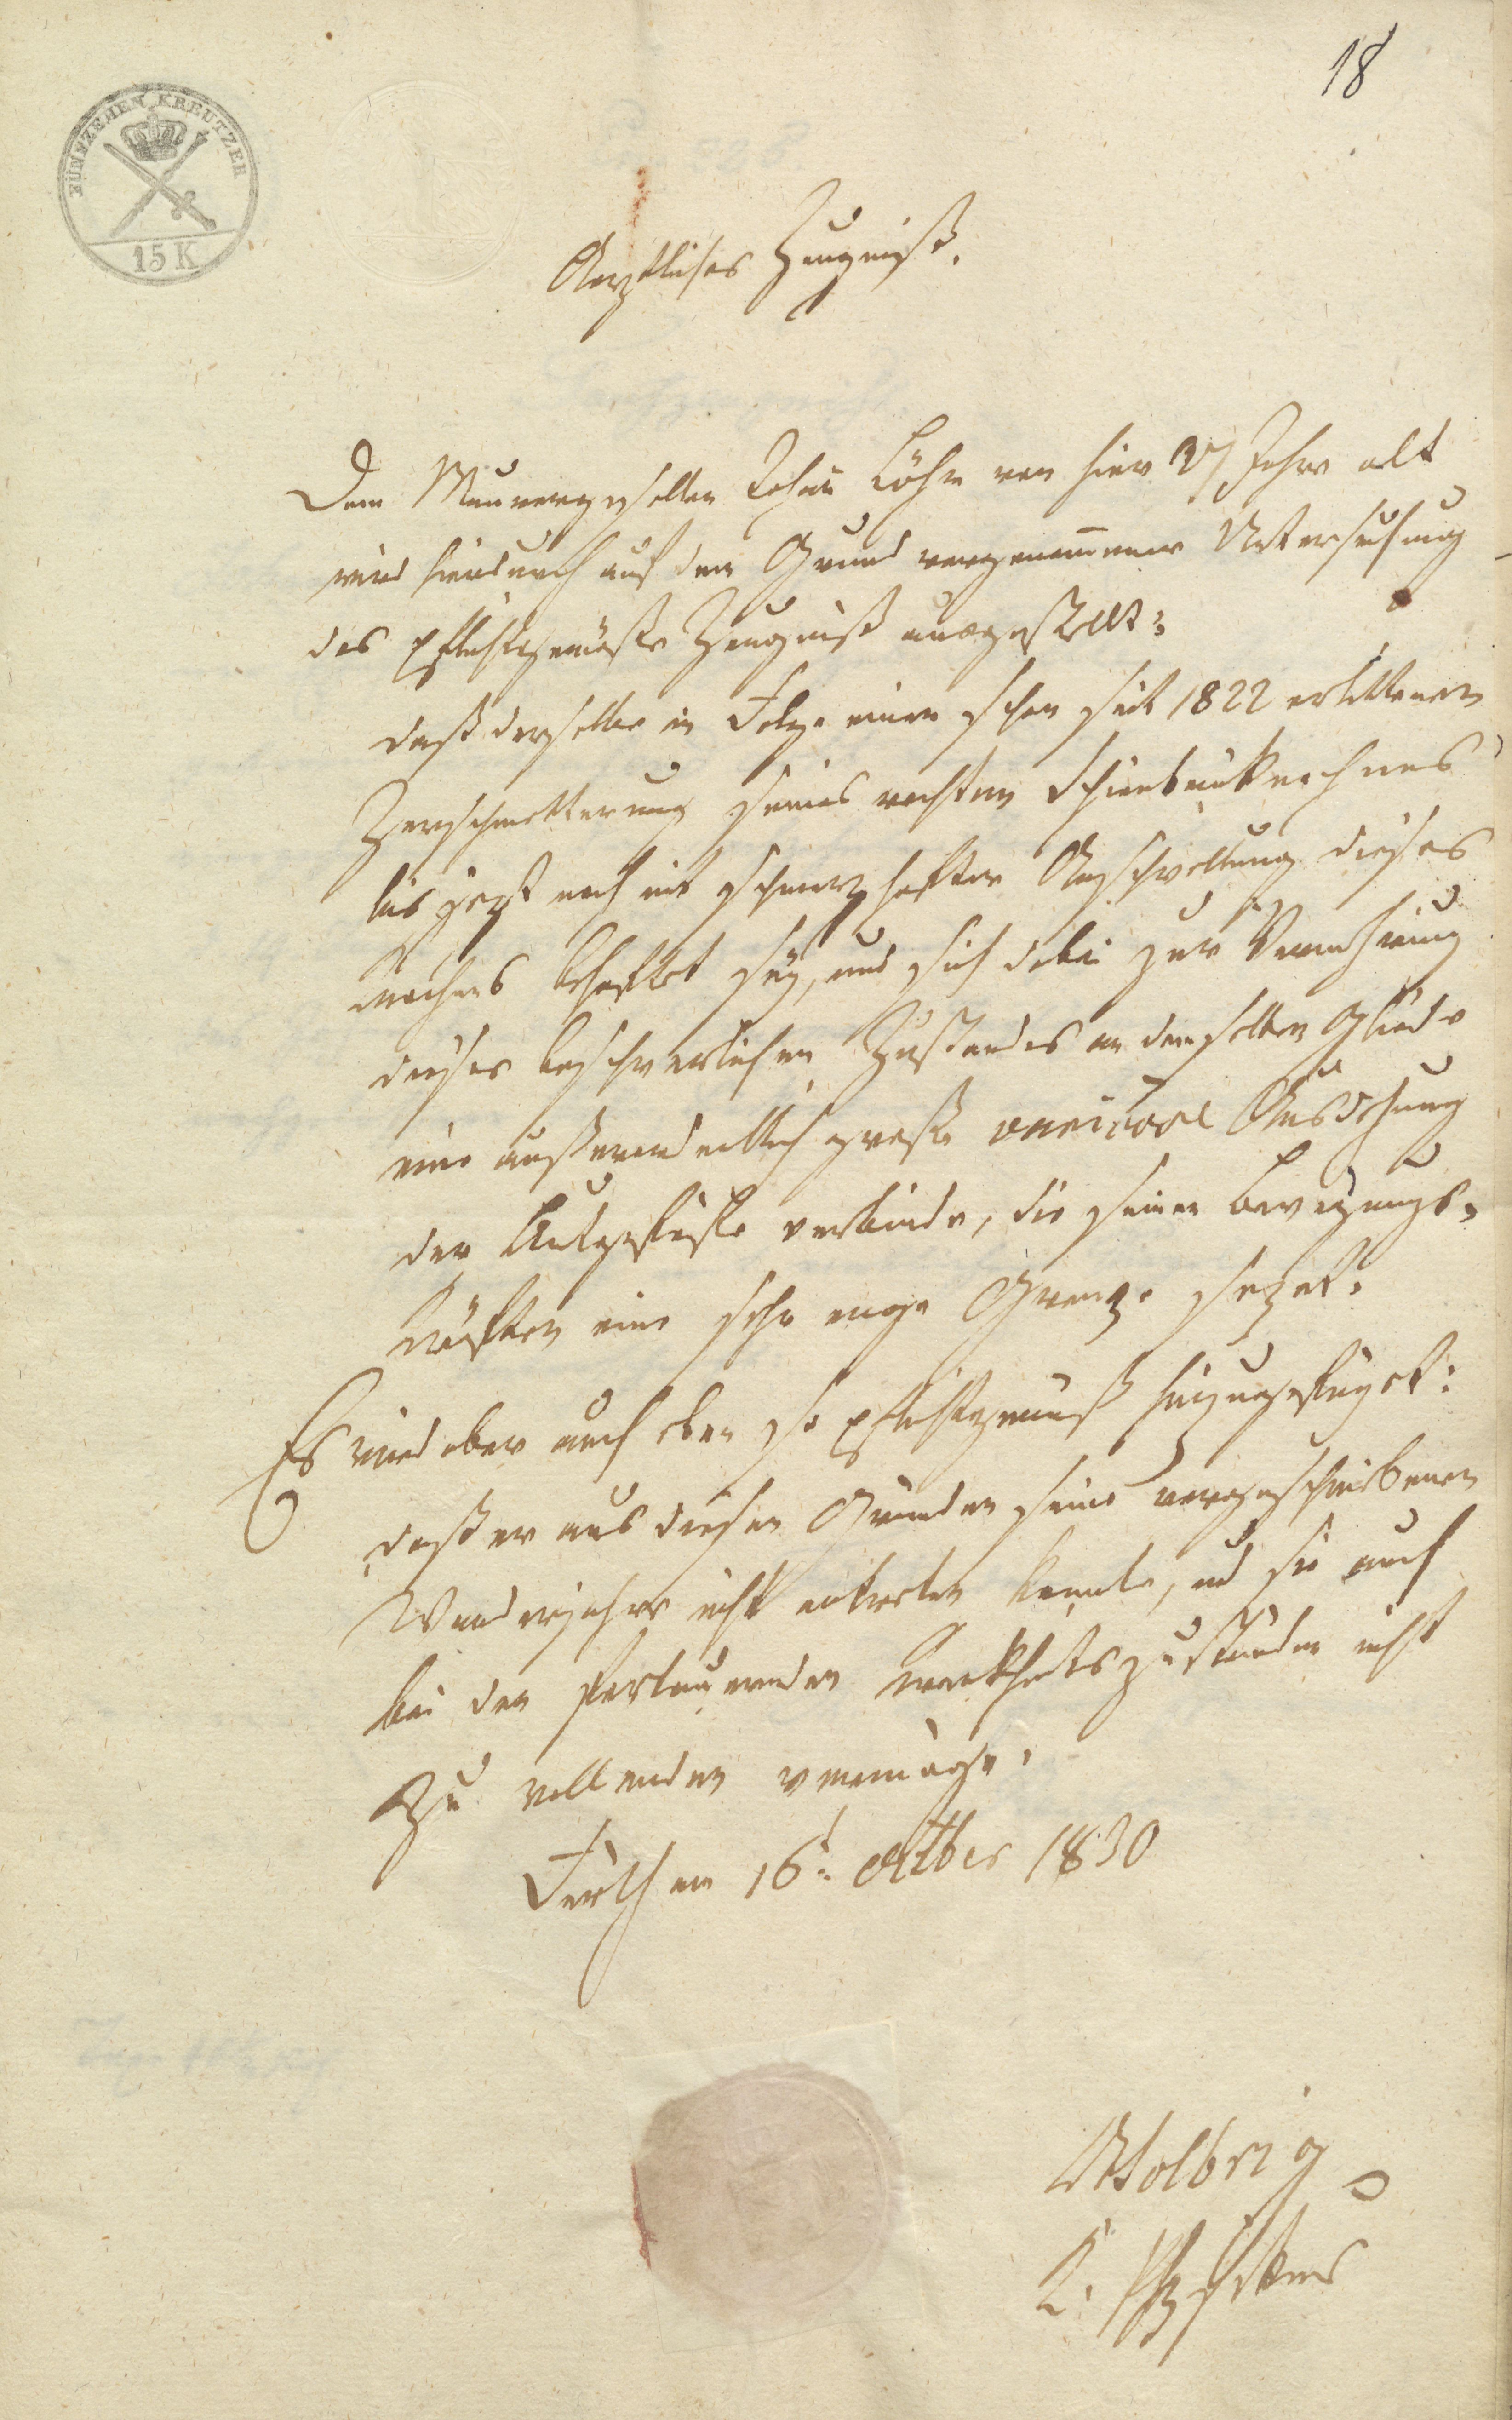 18
FÜNFZEHEN KREUTZER
15 K
Aerztliches Zeugniß.
Dem Maurergesellen Johañ Löhr von hier 27 Jahr alt
wird hierdurch auf den Grund vorgenom̄ener Untersuchung
das pflichtgemäße Zeugniß ausgestellt:
daß derselbe in Folge einer schon seit 1822 erlittenen
Zerschmetterung seines rechten Schienbeinknochens
bis jezt noch mit schmerzhafter Anschwellung dieses
Knochens behaftet sey, und sich dabei zur Vermehrung
dieses beschwerlichen Zustandes an demselben Gliede
eine außerordentlich große varicose Ausdehnung
der Blutgefäße verbinde, die seinen Bewegungs-
kräften eine sehr enge Grenze sezet.
Es wird aber auch eben so pflichtgemäß hinzugefüget:
daß er aus diesen Gründen seine vorgeschriebenen
Wanderjahre nicht antreten konnte, und sie auch
bei den fortdauernden Krankheitszuständen nicht
zu vollenden vermöge.
Fürth am 16. Octber 1830
Wolbrig
K. Physikus